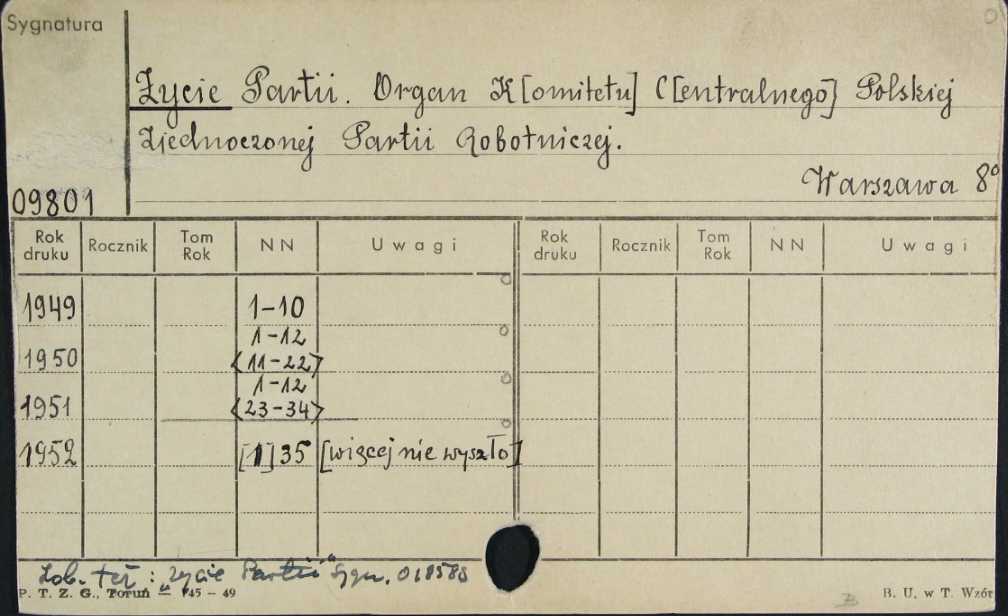 Sygnatura
Życie Partii. Organ K[omitetu] C[entralnego] Polskiej
Zjednoczonej Partii Robotniczej.
Warszawa 8°
09801
Rok druku Rocznik Tom Rok NN Uwagi Rok druku Rocznik Tom Rok NN Uwagi
1949 1-10
1-12
1950 <11-22>
1-12
1951 <23-34>
1952 [1] 35 [więcej nie wyszło]
Zob. też: "Życie Partii" Sygn. 018588
P. T. Z. G., Toruń — 45 - 49 B. U. w T. Wzór